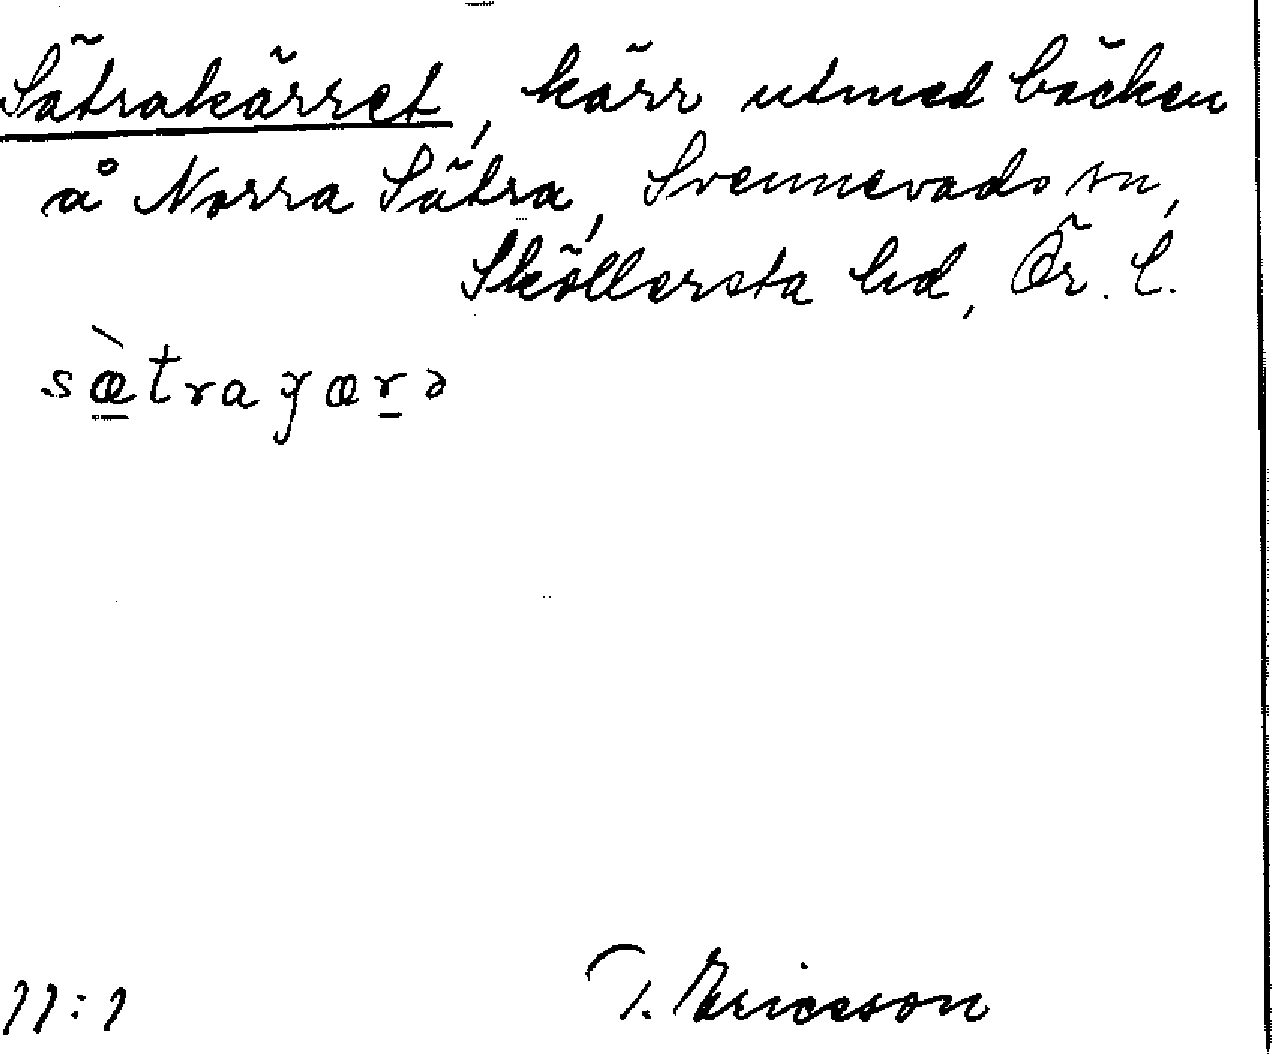 Sätrakärret, kärr utmed bäcken
å Norra Sätra, Svennevads sn,
Sköllersta hd, Ör. l.
sæ̀tragærə
11:1 T. Ericsson